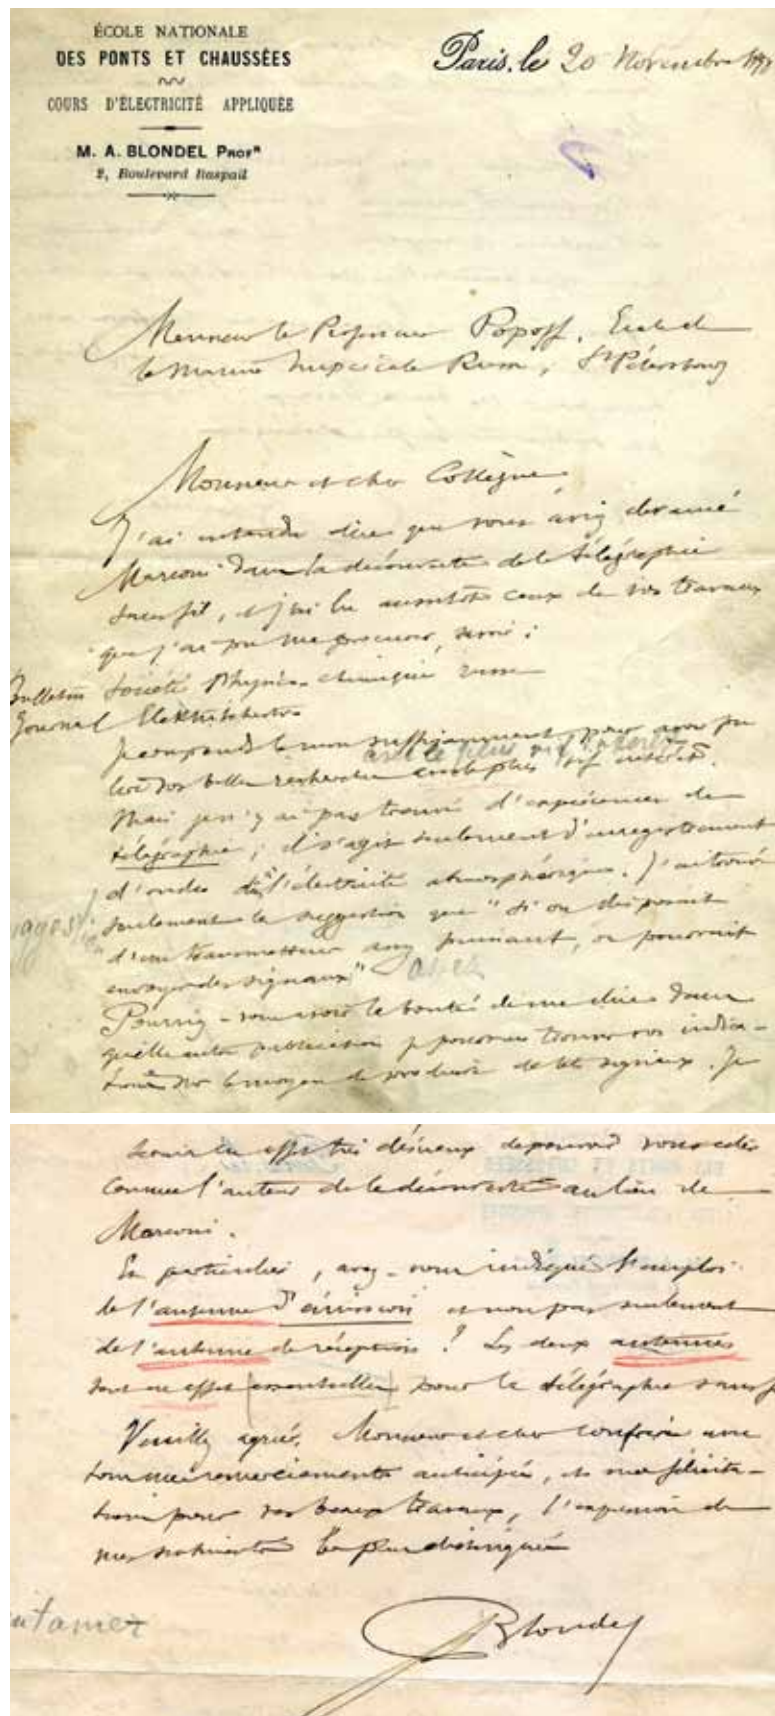 ÉCOLE NATIONALE
DES PONTS ET CHAUSSÉES
COURS D'ÉLECTRICITÉ APPLIQUÉE
M. A. BLONDEL PROFR
2, Boulevard Raspail
Paris, le 20 Novembre
Monsieur le Professeur Popoff, Ecole de
la Marine Impériale Russe, St Pétersbourg
Monsieur et cher Collègue
J'ai entendu dire que vous aviez devancé
Marconi dans la découverte de la télégraphie
sans fil, et j'ai lu aussitôt ceux de vos travaux
que j'ai pu me procurer, savoir :
Bulletin Société Physico-chimique russe
Journal
Je comprends le russe suffisamment pour avoir pu
avec le plus vif intérêt
lire vos belles recherches avec le plus vif intérêt.
Mais je n'y ai pas trouvé d'expériences de
télégraphie ; il s'agit seulement d'enregistrement
d'ondes de l'électricité atmosphérique. J'ai trouvé
seulement la suggestion que "si on disposait
d'un transmetteur assez puissant, on pourrait
envoyer des signaux"
assez
Pourriez-vous avoir la bonté de me dire dans
quelle autre publication je pourrais trouver vos indica-
tions sur le moyen de produire de tels signaux. Je
serais en effet très désireux de pouvoir vous citer
comme l'auteur de la découverte au lieu de
Marconi.
En particulier, avez-vous indiqué l'emploi
de l'antenne d'émission et non pas seulement
de l'antenne de réception ? Les deux antennes
sont en effet essentielles pour la télégraphie sans f
Veuillez agréer, Monsieur et cher confrère avec
tous mes remerciements anticipés, et mes félicita-
tions pour vos beaux travaux, l'expression de
mes sentiments les plus distingués
Blondel